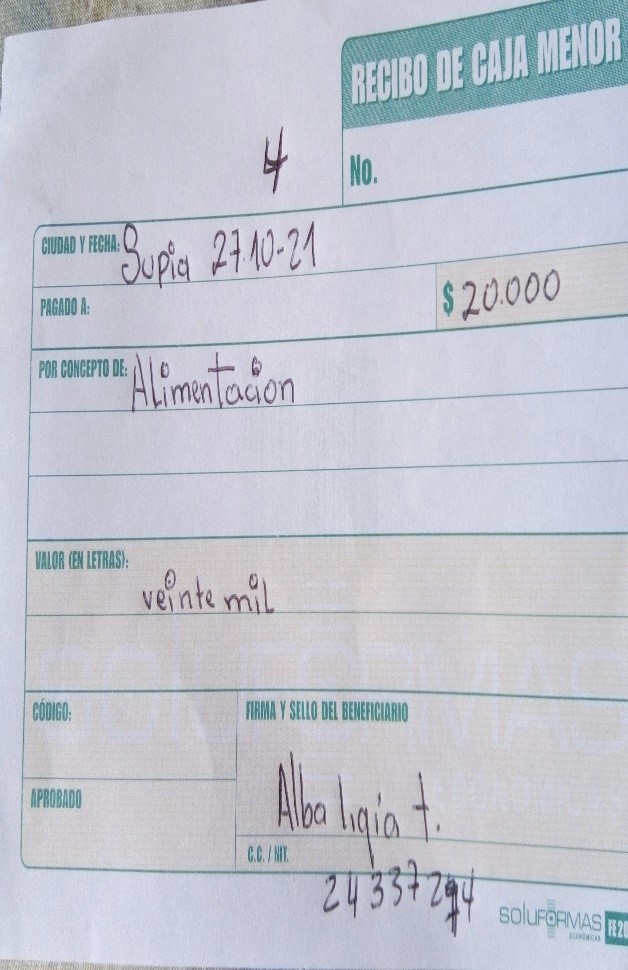 RECIBO DE CAJA MENOR
4
No.
CIUDAD Y FECHA: Supia 27.10-21
PAGADO A:
$ 20.000
POR CONCEPTO DE: Alimentacion
VALOR (EN LETRAS):
veinte mil
CÓDIGO:
FIRMA Y SELLO DEL BENEFICIARIO
APROBADO
Alba ligia t.
C.C. / NIT.
SOLUFORMAS
ECONÓMICAS
FE20